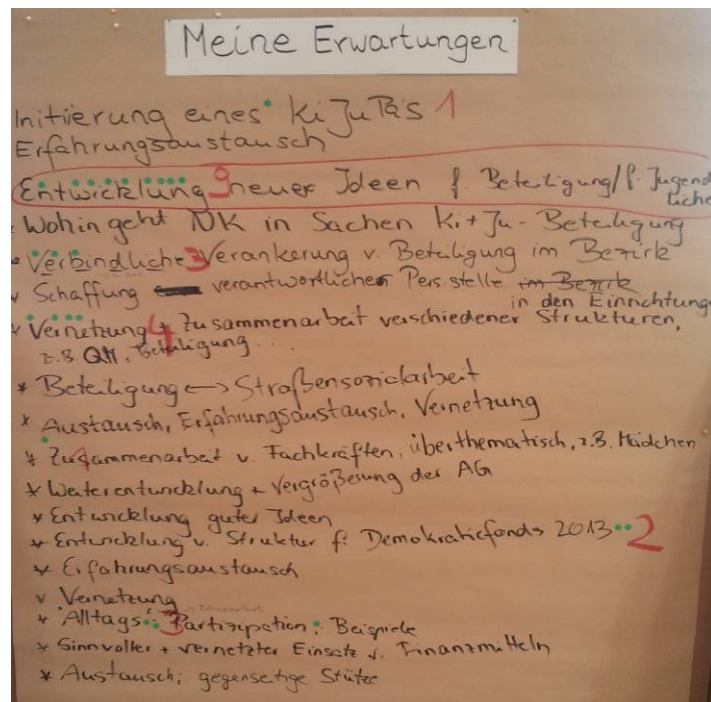 Meine Erwartungen
Initiierung eines KiJuPas 1
Erfahrungsaustausch
Entwicklung 9 neuer Ideen f. Beteiligung/f. Jugend
liche
Wohin geht NK in Sachen Ki + Ju - Beteiligung
Verbindliche 3 Verankerung v. Beteiligung im Bezirk
Schaffung verantwortlicher Pers. stelle im Bezirk
in den Einrichtung
* Vernetzung 4 + Zusammenarbeit verschiedener Strukturen,
z.B. QM, Beteiligung...
* Beteiligung <-> Straßensozialarbeit
* Austausch, Erfahrungsaustausch, Vernetzung
* Zusammenarbeit v. Fachkräften, überthematisch, z.B. Mädchen
* Weiterentwicklung + Vergrößerung der AG
* Entwicklung guter Ideen
* Entwicklung v. Struktur f. Demokratiefonds 2013 2
* Erfahrungsaustausch
* Vernetzung
* Alltags 3 Partizipation: Beispiele
* Sinnvoller + vernetzter Einsatz v. Finanzmitteln
* Austausch; gegenseitige Stütze